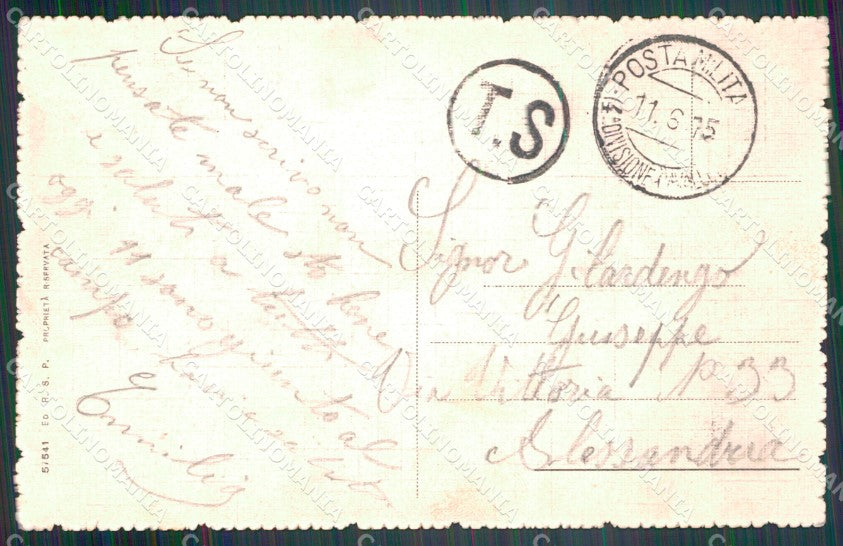 Se non scrivo non
pensate male sto bene
e saluti a tutti
oggi 11 sono giunto al
campo
Emilio
T.S
POSTA MILITA
11. 6 15
DIVISIONE
Signor Gilardengo
Giuseppe
Via Vittoria N° 33
Alessandria
57541 ED. R. S. P. PROPRIETÀ RISERVATA
CARTOLINOMANIA